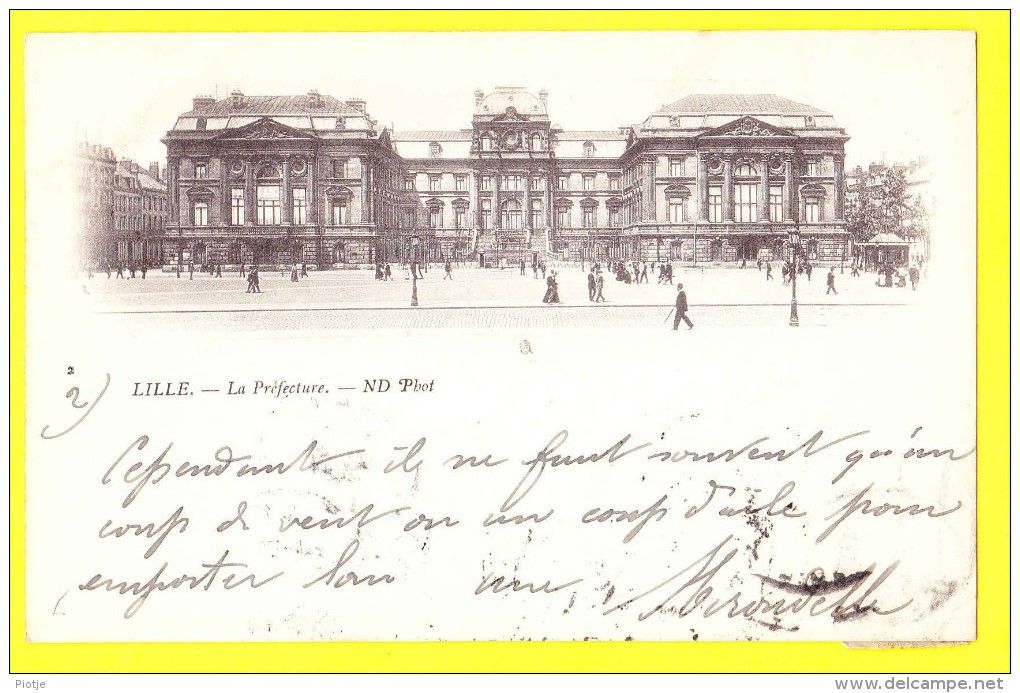 2
LILLE. — La Préfecture. — ND Phot
2)
Cependant il ne faut souvent qu'un
coup de vent ou un coup d'aile pour
emporter l'on une Hirondelle
Piotje
www.delcampe.net